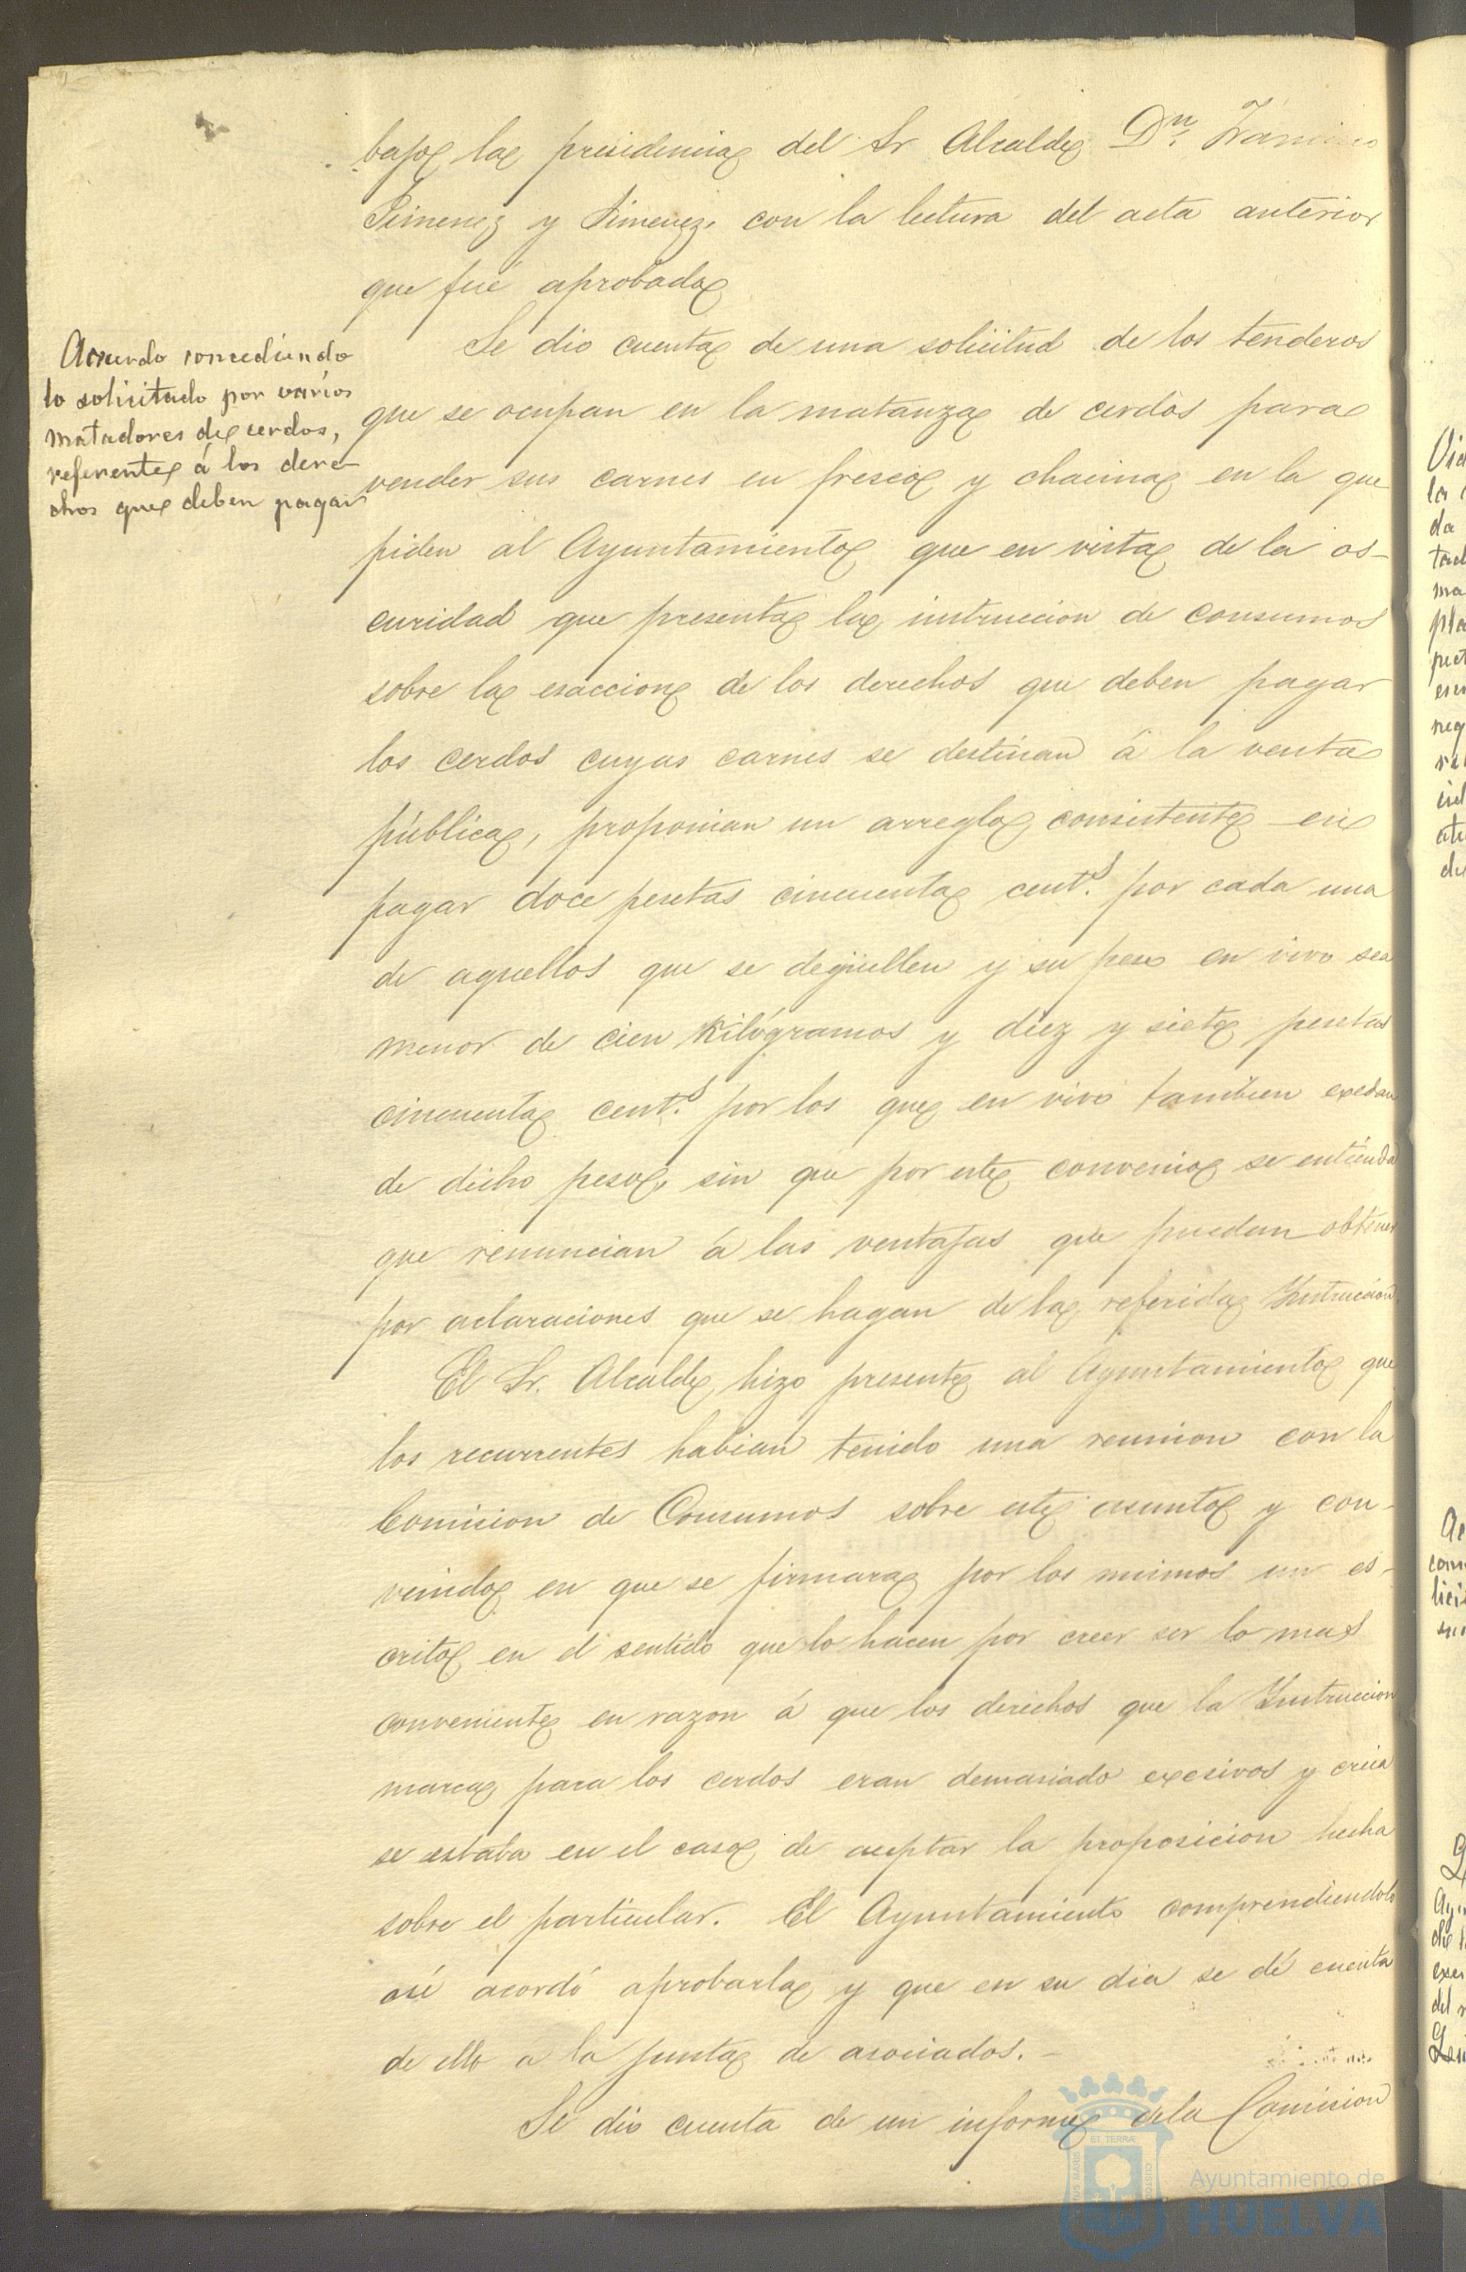 bajo la presidencia del Sr Alcalde Dn. Francisco
Jimenez y Jimenez, con la lectura del acta anterior
que fué aprobada
Acuerdo concediendo
lo solicitado por varios
matadores de cerdos,
referente á los dere-
chos que deben pagar
Se dio cuenta de una solicitud de los tenderos
que se ocupan en la matanza de cerdos para
vender sus carnes en fresco y chacina en la que
piden al Ayuntamiento que en vista de la os-
curidad que presenta la instruccion de consumos
sobre la esaccion de los derechos que deben pagar
los cerdos cuyas carnes se destinan á la venta
pública, proponian un arreglo consistente en
pagar doce pesetas cincuenta cent.s por cada una
de aquellos que se degüellen y su peso en vivo sea
menor de cien Kilógramos y diez y siete pesetas
cincuenta cent.s por los que en vivo tambien exedan
de dicho peso, sin que por este convenio se entienda
que renuncian á las ventajas que puedan obtener
por aclaraciones que se hagan de la referida Instruccion
El Sr. Alcalde hizo presente al Ayuntamiento que
los recurrentes habian tenido una reunion con la
Comision de Consumos sobre este asunto y con-
venido en que se firmara por los mismos un es-
crito en el sentido que lo hacen por creer ser lo mas
conveniente en razon á que los derechos que la Instruccion
marca para los cerdos eran demasiado exesivos y creia
se estaba en el caso de aceptar la proposicion hecha
sobre el particular. El Ayuntamiento comprendiendolo
asi acordó aprobarla y que en su dia se dé cuenta
de ello a la junta de asociados.-
Se dio cuenta de un informe de la Comision
Ayuntamiento de
HUELVA